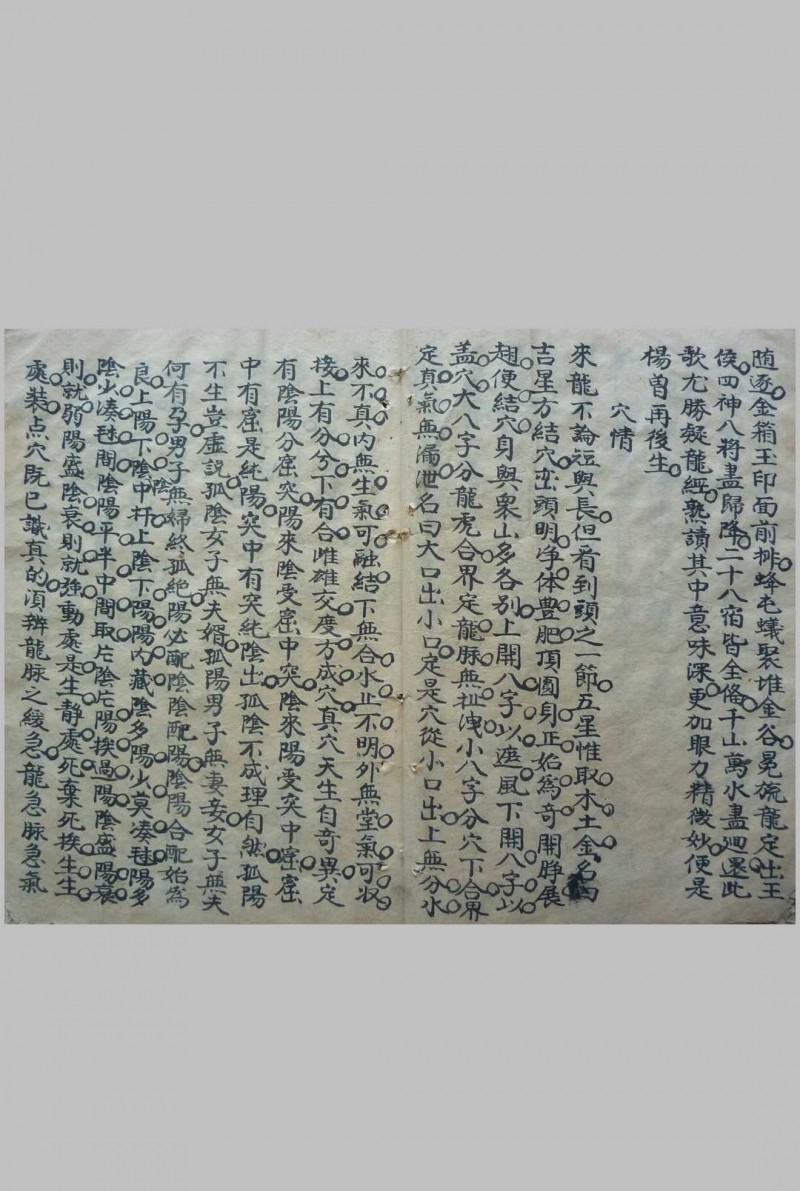 随逐金箱玉印面前排蜂屯蟻聚堆金谷冕旒龍定出王
侯四神八將盡歸降二十八宿皆全偹千山萬水盡廻還此
歌尤勝疑龍經熟讀其中意味深更加眼力精微妙便是
楊曽再後生
穴情
來龍不論短與長但看到頭之一節五星惟取木土金名曰
吉星方結穴巒頭明净体豊肥頂圓身正始為奇開睁展
翅便結穴身與衆山多各别上開八字以遮風下開八字以
盖穴大八字分龍虎合界定龍脉無扯洩小八字分穴下合界
定真氣無漏泄名曰大口出小口定是穴從小口出上無分水
來不真内無生氣可融結下無合水止不明外無堂氣可収
接上有分兮下有合雌雄交度方成穴真穴天生自竒異定
有陰陽分窟突陽來陰受窟中突陰來陽受突中窟窟
中有窟是純陽突中有突純陰出孤陰不成理自然孤陽
不生豈虚説孤陰女子無夫婿孤陽男子無妻妾女子無夫
何有孕男子無婦終孤絶陽必配陰陰配陽陰陽合配始為
良上陽下陰中扦上陰下陽陽内藏陰多陽少莫凑毬陽多
陰少凑毬間陰陽平半中間取片陰片陽挨過陽陰盛陽衰
則就弱陽盛陰衰則就強動處是生静處死棄死挨生生
處裝点穴既已識真的湏辨龍脉之緩急龍急脉急氣